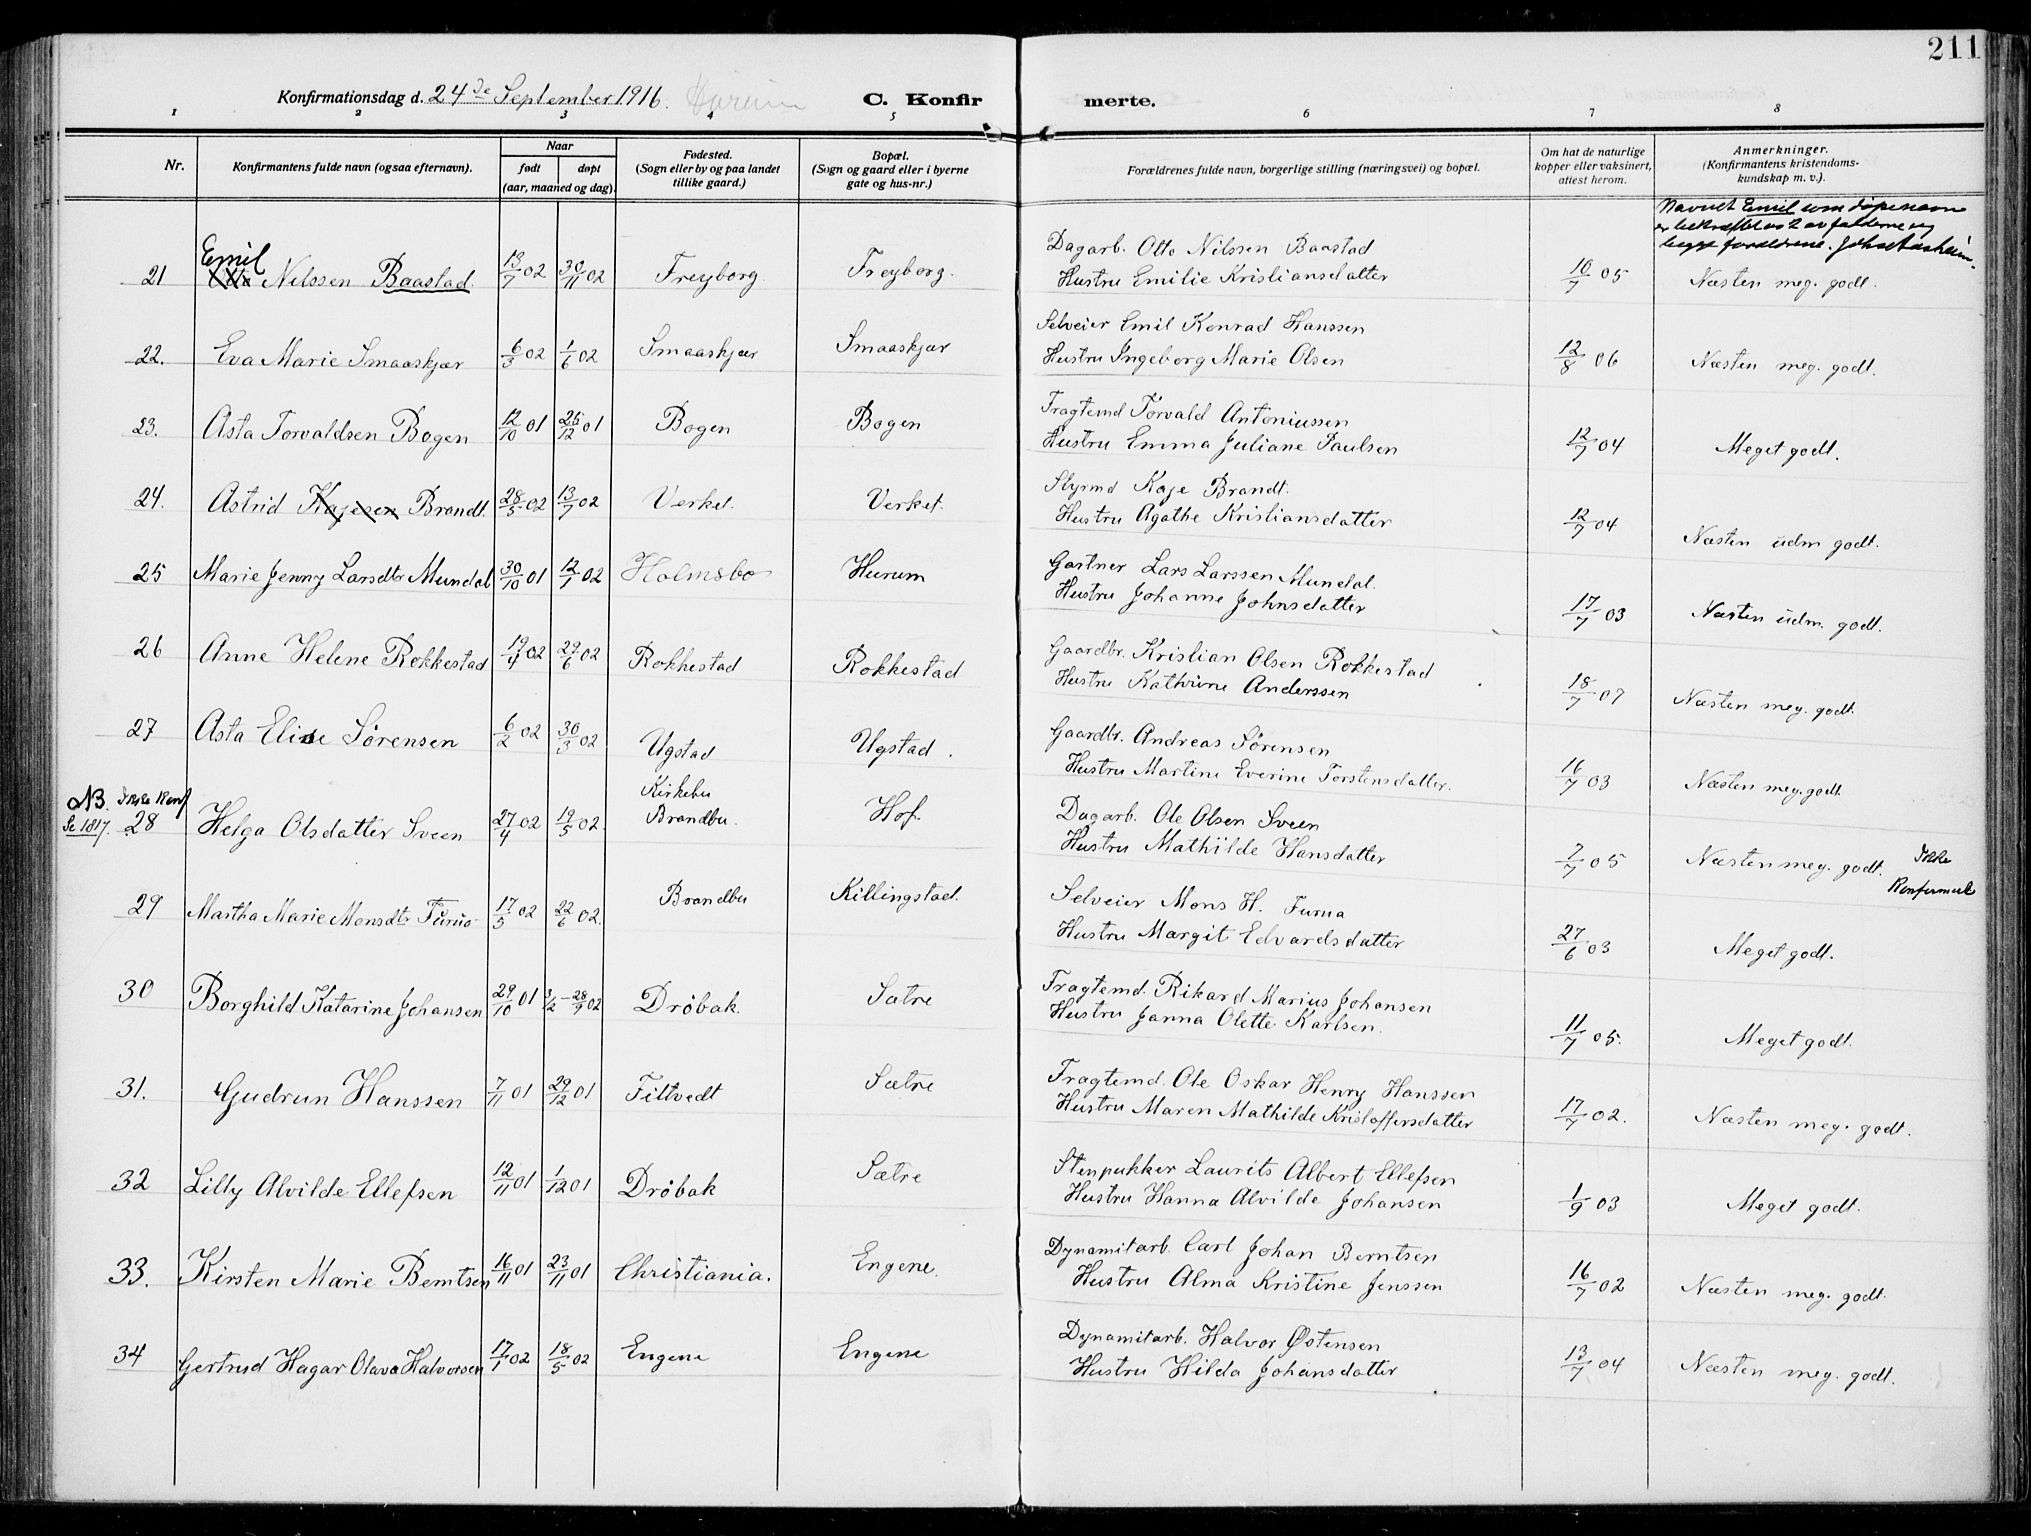 211
Konfirmationsdag d. 24de September 1916. Hurum C. Konfirmerte.
1 2 3 4 5 6 7 8
Nr. Konfirmantens fulde navn (ogsaa efternavn). Naar født døpt (aar, maaned og dag). Fødested. (Sogn eller by og paa landet tillike gaard.) Bopæl. (Sogn og gaard eller i byerne gate og hus-nr.) Forældrenes fulde navn, borgerlige stilling (næringsvei) og bopæl. Om hat de naturlige kopper eller vaksinert, attest herom. Anmerkninger. (Konfirmantens kristendoms-kundskap m. v.).
Navnet Emil som døpenavn
er bekræftet av faderne og
begge forældrene.
21 Emil Nilssen Baastad. 13/7 02 30/11 02 Freyborg. Freyborg. Dagarb. Otto Nilssen Baastad
Hustru Emilie Kristiansdatter 10/7 05 Næsten meg. godt.
22. Eva Marie Smaaskjær 6/3 02 1/6 02 Smaaskjær Smaaskjær Selveier Emil Konrad Hanssen
Hustru Ingeborg Marie Olsen 12/8 06 Næsten meg. godt.
23. Asta Torvaldsen Bogen 12/10 01 26/12 01 Bogen Bogen Fragtemd Torvald Antoniussen
Hustru Emma Juliane Paulsen 12/7 04 Meget godt.
24. Astrid Kajesen Brandt. 28/5 02 13/7 02 Verket. Verket. Styrmd Kaje Brandt.
Hustru Agathe Kristiansdatter 12/7 04 Næsten udm godt.
25 Marie Jenny Larsdtr Mundal 30/10 01 12/1 02 Holmsbo Hurum Gartner Lars Larssen Mundal.
Hustru Johanne Johnsdatter 17/7 03 Næsten udm. godt.
26 Anne Helene Rokkestad 19/4 02 29/6 02 Rokkestad Rokkestad Gaardbr. Kristian Olsen Rokkestad
Hustru Kathrine Anderssen 18/7 07 Næsten meg. godt.
27 Asta Elise Sørensen 6/2 02 30/3 02 Ugstad Ugstad. Gaardbr. Andreas Sørensen
Hustru Martine Everine Torstensdatter. 16/7 03 Næsten meg. godt.
NB. Ikke Konf
Se 1817. 28 Helga Olsdatter Sveen 27/4 02 19/5 02. Kirkebu Brandbu. Hof. Dagarb. Ole Olsen Sveen
Hustru Mathilde Hansdatter 7/7 05 Næsten meg. godt. Ikke
Konfirmert
29 Martha Marie Monsdtr Furuo 17/5 02 22/6 02. Brandbu Killingstad. Selveier Mons H. Furua
Hustru Margit Edvardsdatter 27/6 03 Meget godt.
30 Borghild Katarine Johansen 29/10 01 3/2 - 28/9 02 Drøbak. Sætre Fragtemd. Rikard Marius Johansen
Hustru Janna Olette Karlsen. 11/7 05. Meget godt.
31. Gudrun Hanssen 7/11 01 29/12 01 Filtvedt Sætre Fragtemd. Ole Oskar Henry Hanssen
Hustru Maren Mathilde Kristoffersdatter 17/7 02. Næsten meg. godt.
32 Lilly Alvilde Ellefsen 12/11 01 1/12 01 Drøbak Sætre Stenpukker Laurits Albert Ellefsen
Hustru Hanna Alvilde Johansen 1/9 03 Meget godt.
33. Kirsten Marie Berntsen 16/11 01 23/11 01 Christiania. Engene. Dynamitarb. Carl Johan Berntsen
Hustru Alma Kristine Jenssen 16/7 02 Næsten meg. godt.
34 Gertrud Hagar Olava Halvorsen 17/1 02 18/5 02 Engene Engene Dynamitarb. Halvor Østensen
Hustru Hilda Johansdatter 13/7 04 Næsten meg. godt.